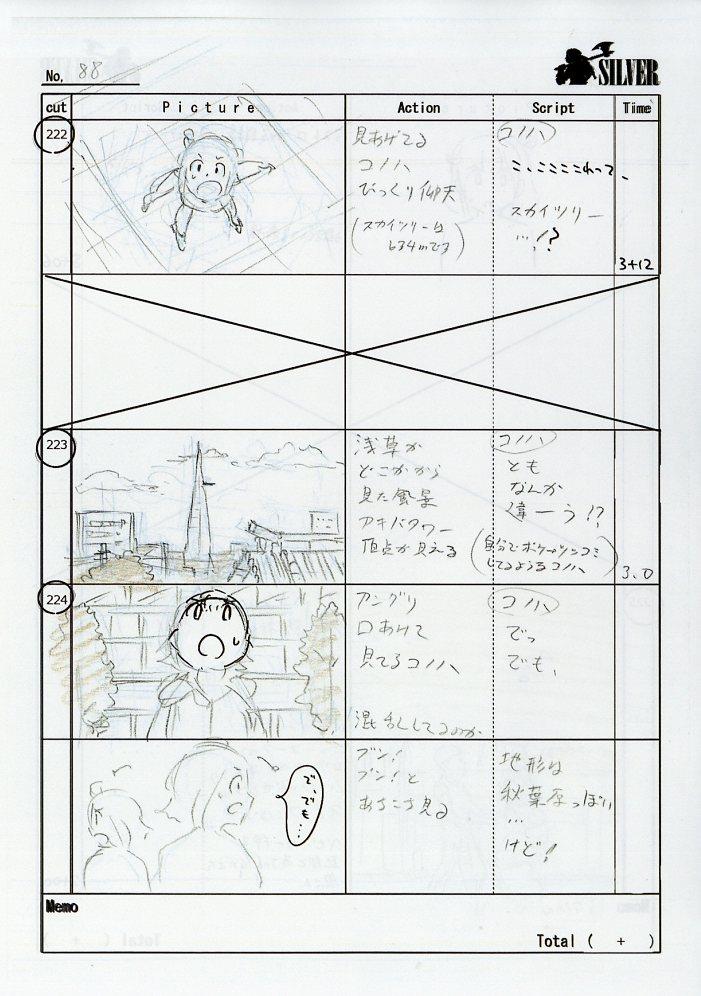 No. 88
SILVER
cut Picture Action Script Time
222
見あげてる
コノハ
びっくり仰天
(スカイツリーは
634mです)
コノハ
こ、こここれって、
スカイツリー
…!?
3+12
223
浅草か
どこかから
見た風景
アキバタワー
頂点が見える
コノハ
とも
なんか
違ーう!?
(自分でボケツッコミ
してるようなコノハ)
3.0
224
アングリ
口あけて
見てるコノハ
混乱してるのか
コノハ
でっ
でも、
で、でも…
ブン!
ブン!と
あちこち見る
地形は
秋葉原っぽい
…
けど!
Memo
Total ( + )